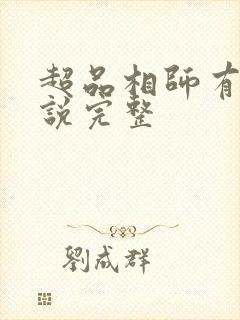 超品相師有
說完整
劉成群